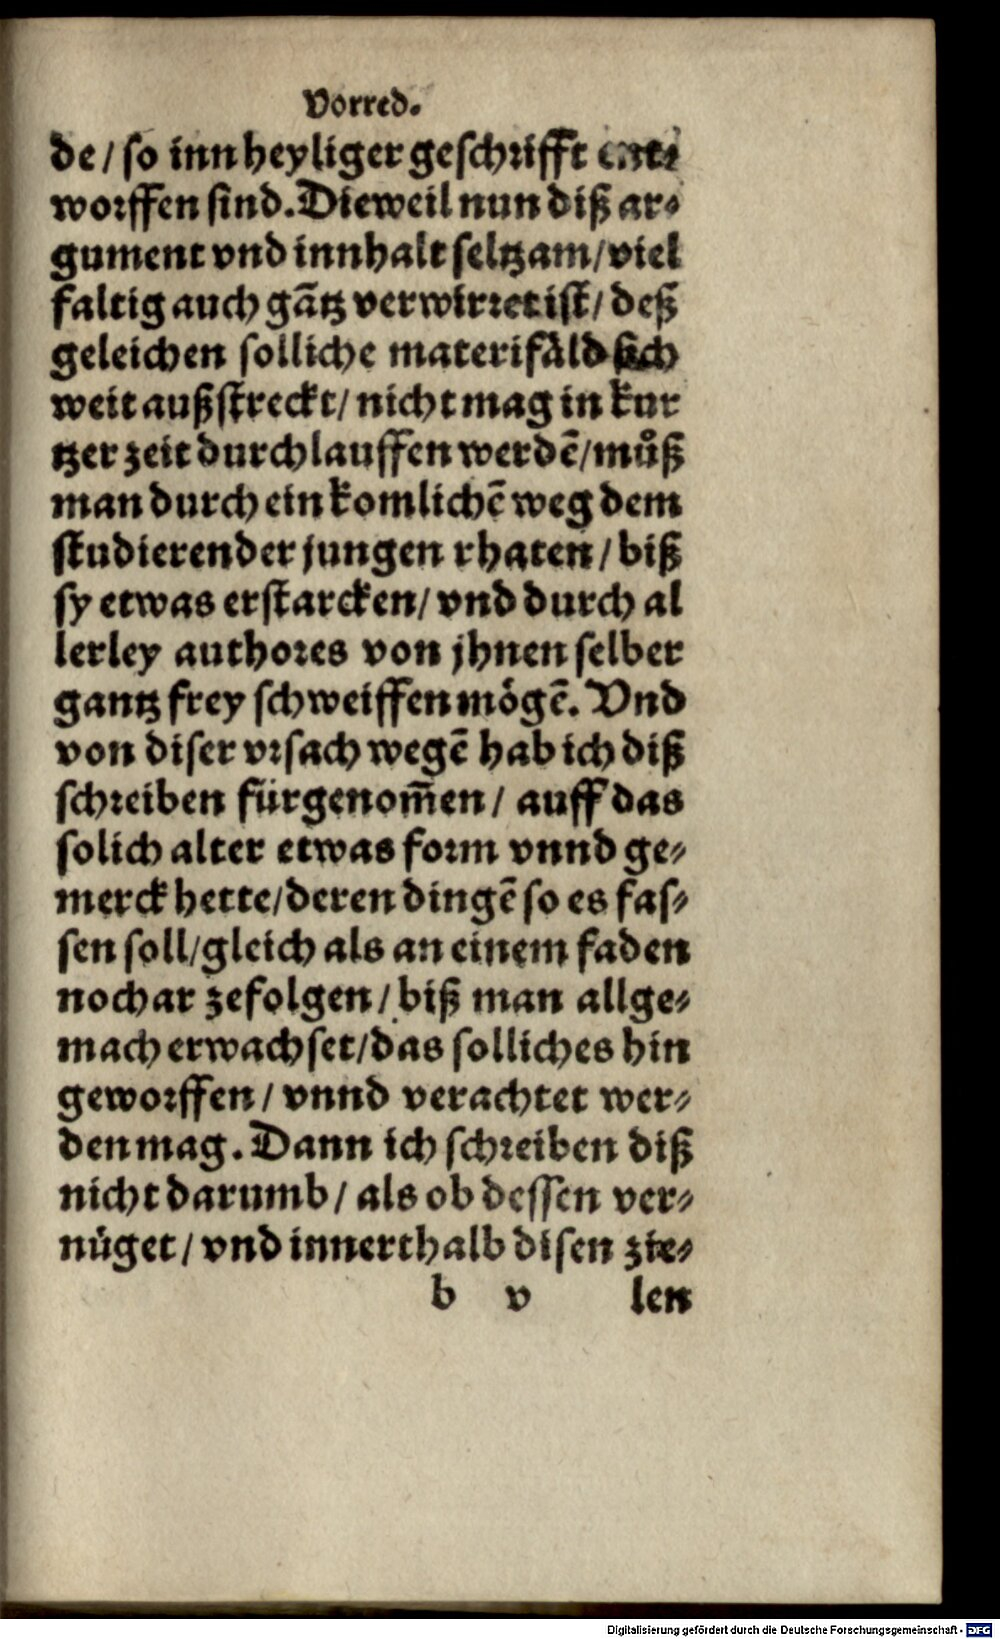 Vorred.
de/ so inn heyliger geschrifft ent⸗
worffen sind. Dieweil nun diß ar⸗
gument vnd innhalt seltzam/ viel
faltig auch gātz verwirret ist/ deß
geleichen solliche materifāld sich
weit außstreckt/ nicht mag in kur
tzer zeit durchlauffen werdē/ můß
man durch ein komlichē weg dem
studierender jungen rhaten/ biß
sy etwas erstarcken/ vnd durch al
lerley authores von jhnen selber
gantz frey schweiffen mögē. Vnd
von diser vrsach wegē hab ich diß
schreiben fürgenom̄en/ auff das
solich alter etwas form vnnd ge⸗
merck hette/ deren dingē so es fas⸗
sen soll/ gleich als an einem faden
nochar zefolgen/ biß man allge⸗
mach erwachset/ das solliches hin
geworffen/ vnnd verachtet wer⸗
den mag. Dann ich schreiben diß
nicht darumb/ als ob dessen ver⸗
nüget/ vnd innerthalb disen zie⸗
b v len
Digitalisierung gefördert durch die Deutsche Forschungsgemeinschaft - DFG